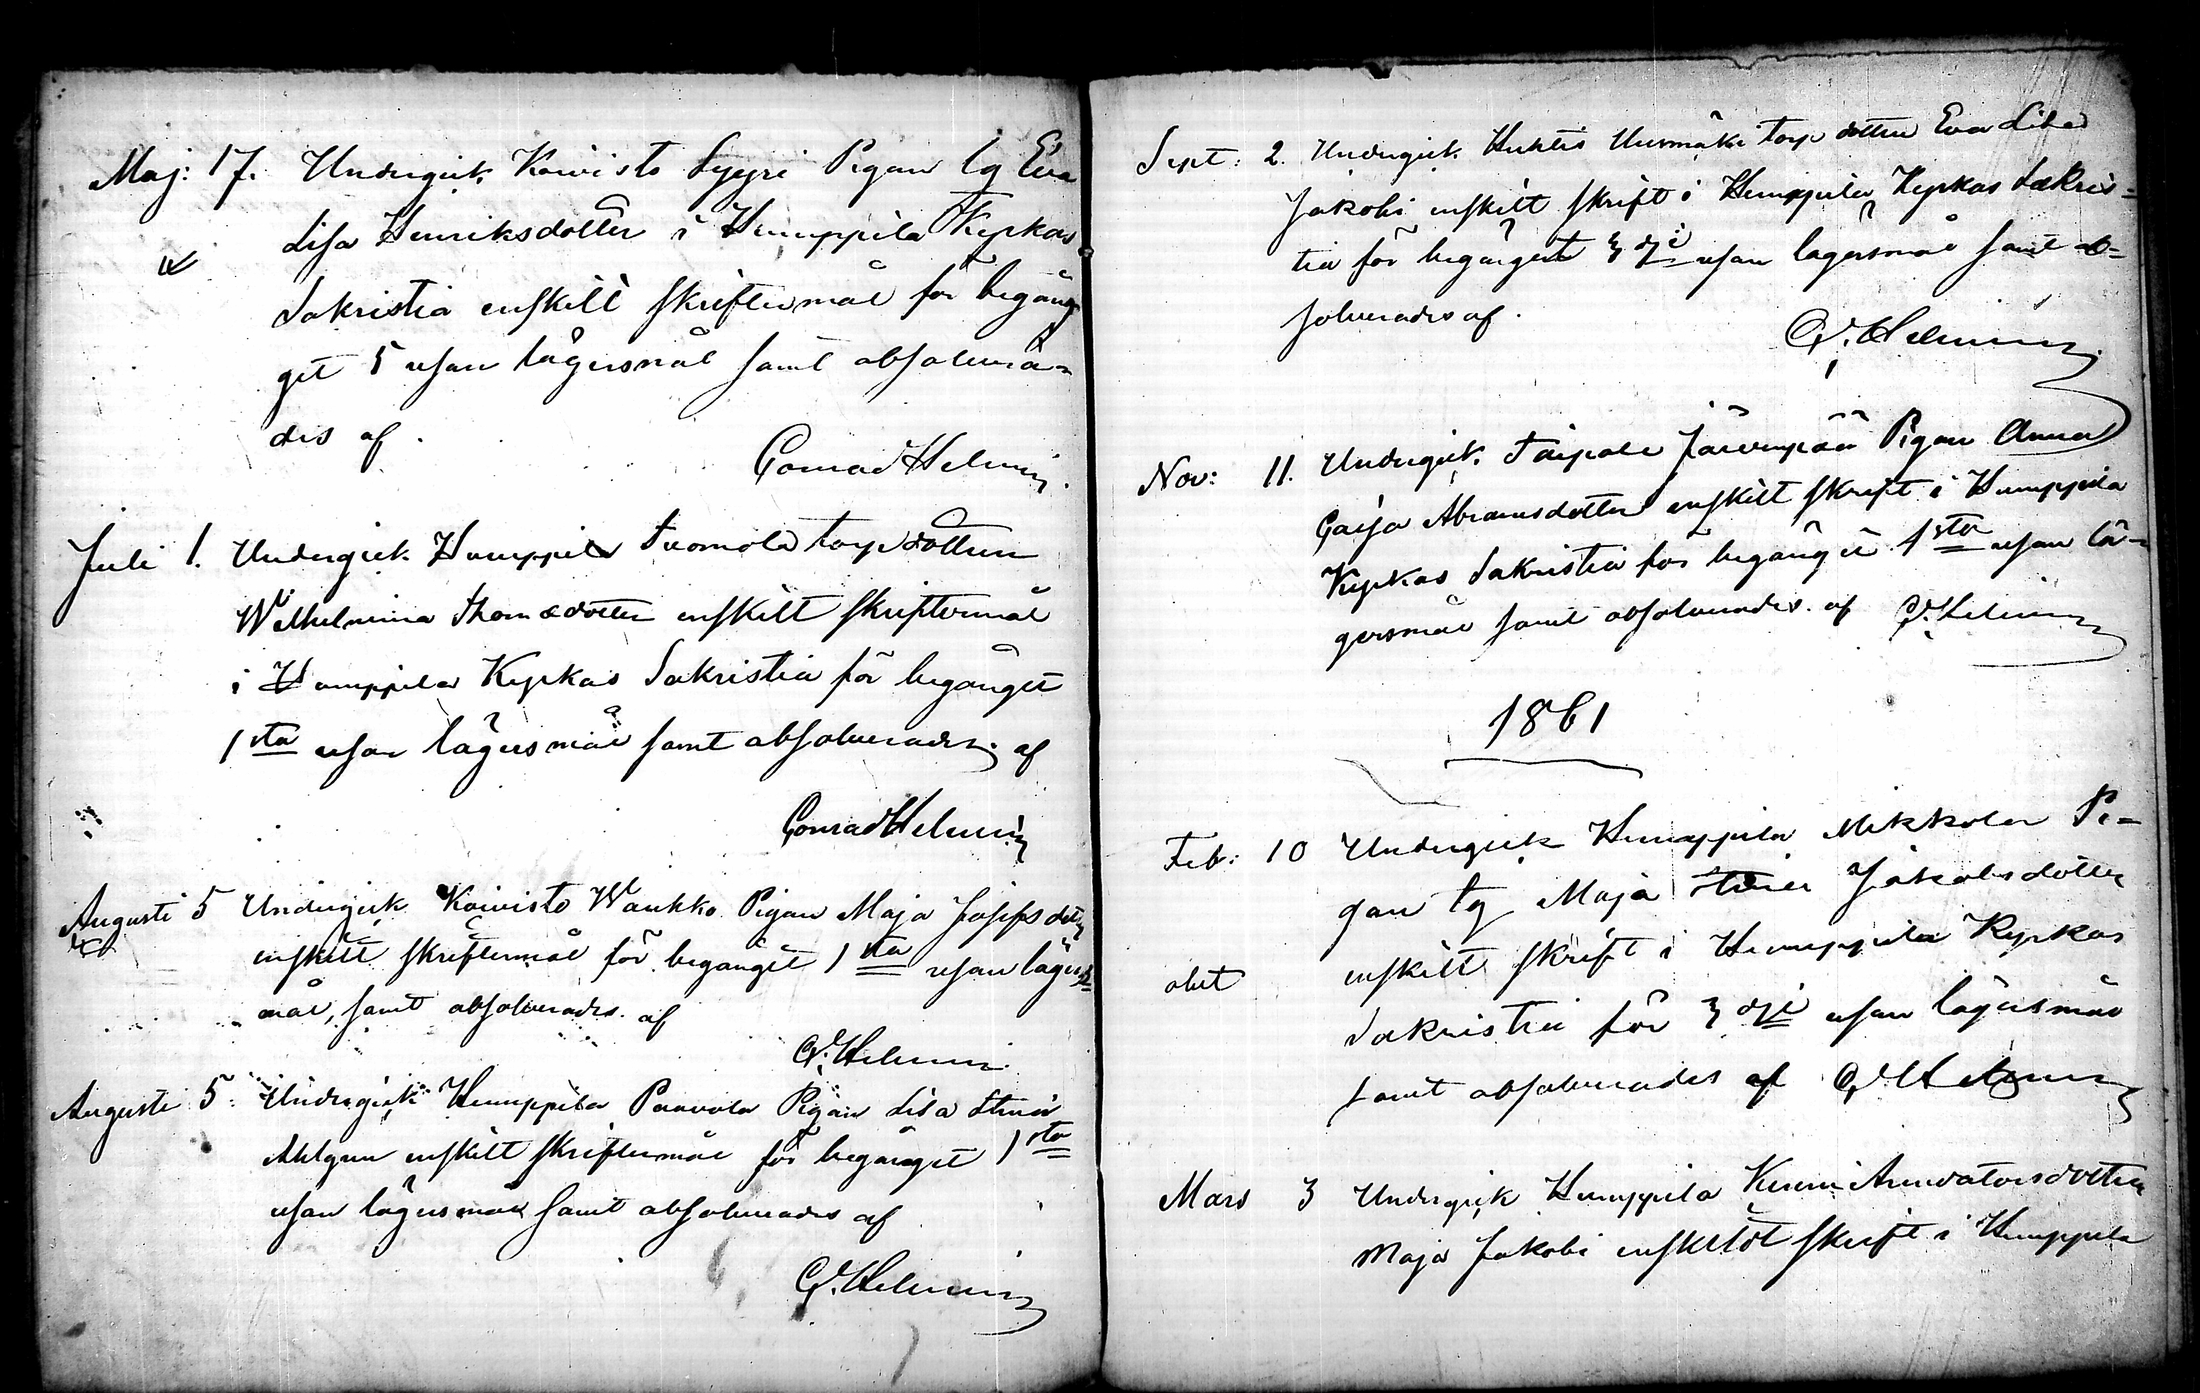 Maj: 17. Undergick Koivisto Syyri Pigan lg Eva
Lisa Henriksdotter i Humppila Kyrkas
Sakristia enskilt skriftermål för begång
get 5 resan lägersmål samt absolvera-
des af.
Conrad Helenius.
Juli 1. Undergick Humppila Tuomola torp dottren
Wilhelmina Thomædotter enskilt skriftermål
i Humppila Kyrkas Sakristia för begånget
1sta resan lägersmål samt absolverades af
Conrad Helenius
Augusti 5 Undergick Koivisto Waukko Pigan Maja Josefsdotter
enskilt skriftermål för begånget 1sta resan lägers-
mål, samt absolverades af
C. Helenius
Augusti 5. Undergick Humppila Paavola Pigan Lisa Stina
Ahlgren enskilt skriftermål för begånget 1sta
resan lägersmål samt absolverades af
C. Helenius
Sept: 2. Undergick Huhtis Uusmäki torp dottren Eva Lisa
Jakobi enskilt skrift i Humppila Kyrkas Sakris-
tia för begånget 3dje resan lägersmål samt ab-
solverades af.
C. Helenius
Nov: 11. Undergick Taipale Järvenpää Pigan Anna
Caisa Abramsdotter enskilt skrift i Humppila
Kyrkas Sakristia för begånget 1sta resan lä-
gersmål samt absolverades af C. Helenius
1861
Feb: 10 Undergick Humppila Mikkola Pi-
gan lg Maja Stina Jakobsdotter
enskilt skrift i Humppila Kyrkas
Sakristia för 3dje resan lägersmål
samt absolverades af C. Helenius
Mars 3 Undergick Humppila Arendatorsdotter
Maja Jakobi enskildt skrift i Humppila